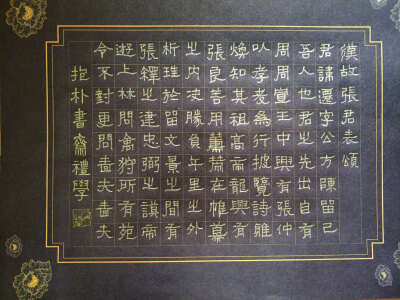 漢故張君表頌
君諱遷字公方陳留己
吾人也君之先出自有
周周宣王中興有張仲
以孝友為行披覽詩雅
煥知其祖高帝龍興有
張良善用籌策在帷幕
之內決勝負千里之外
析珪於留文景之間有
張釋之建忠弼之謨帝
遊上林問禽狩所有苑
令不對更問嗇夫嗇夫
抱朴書齋禮學